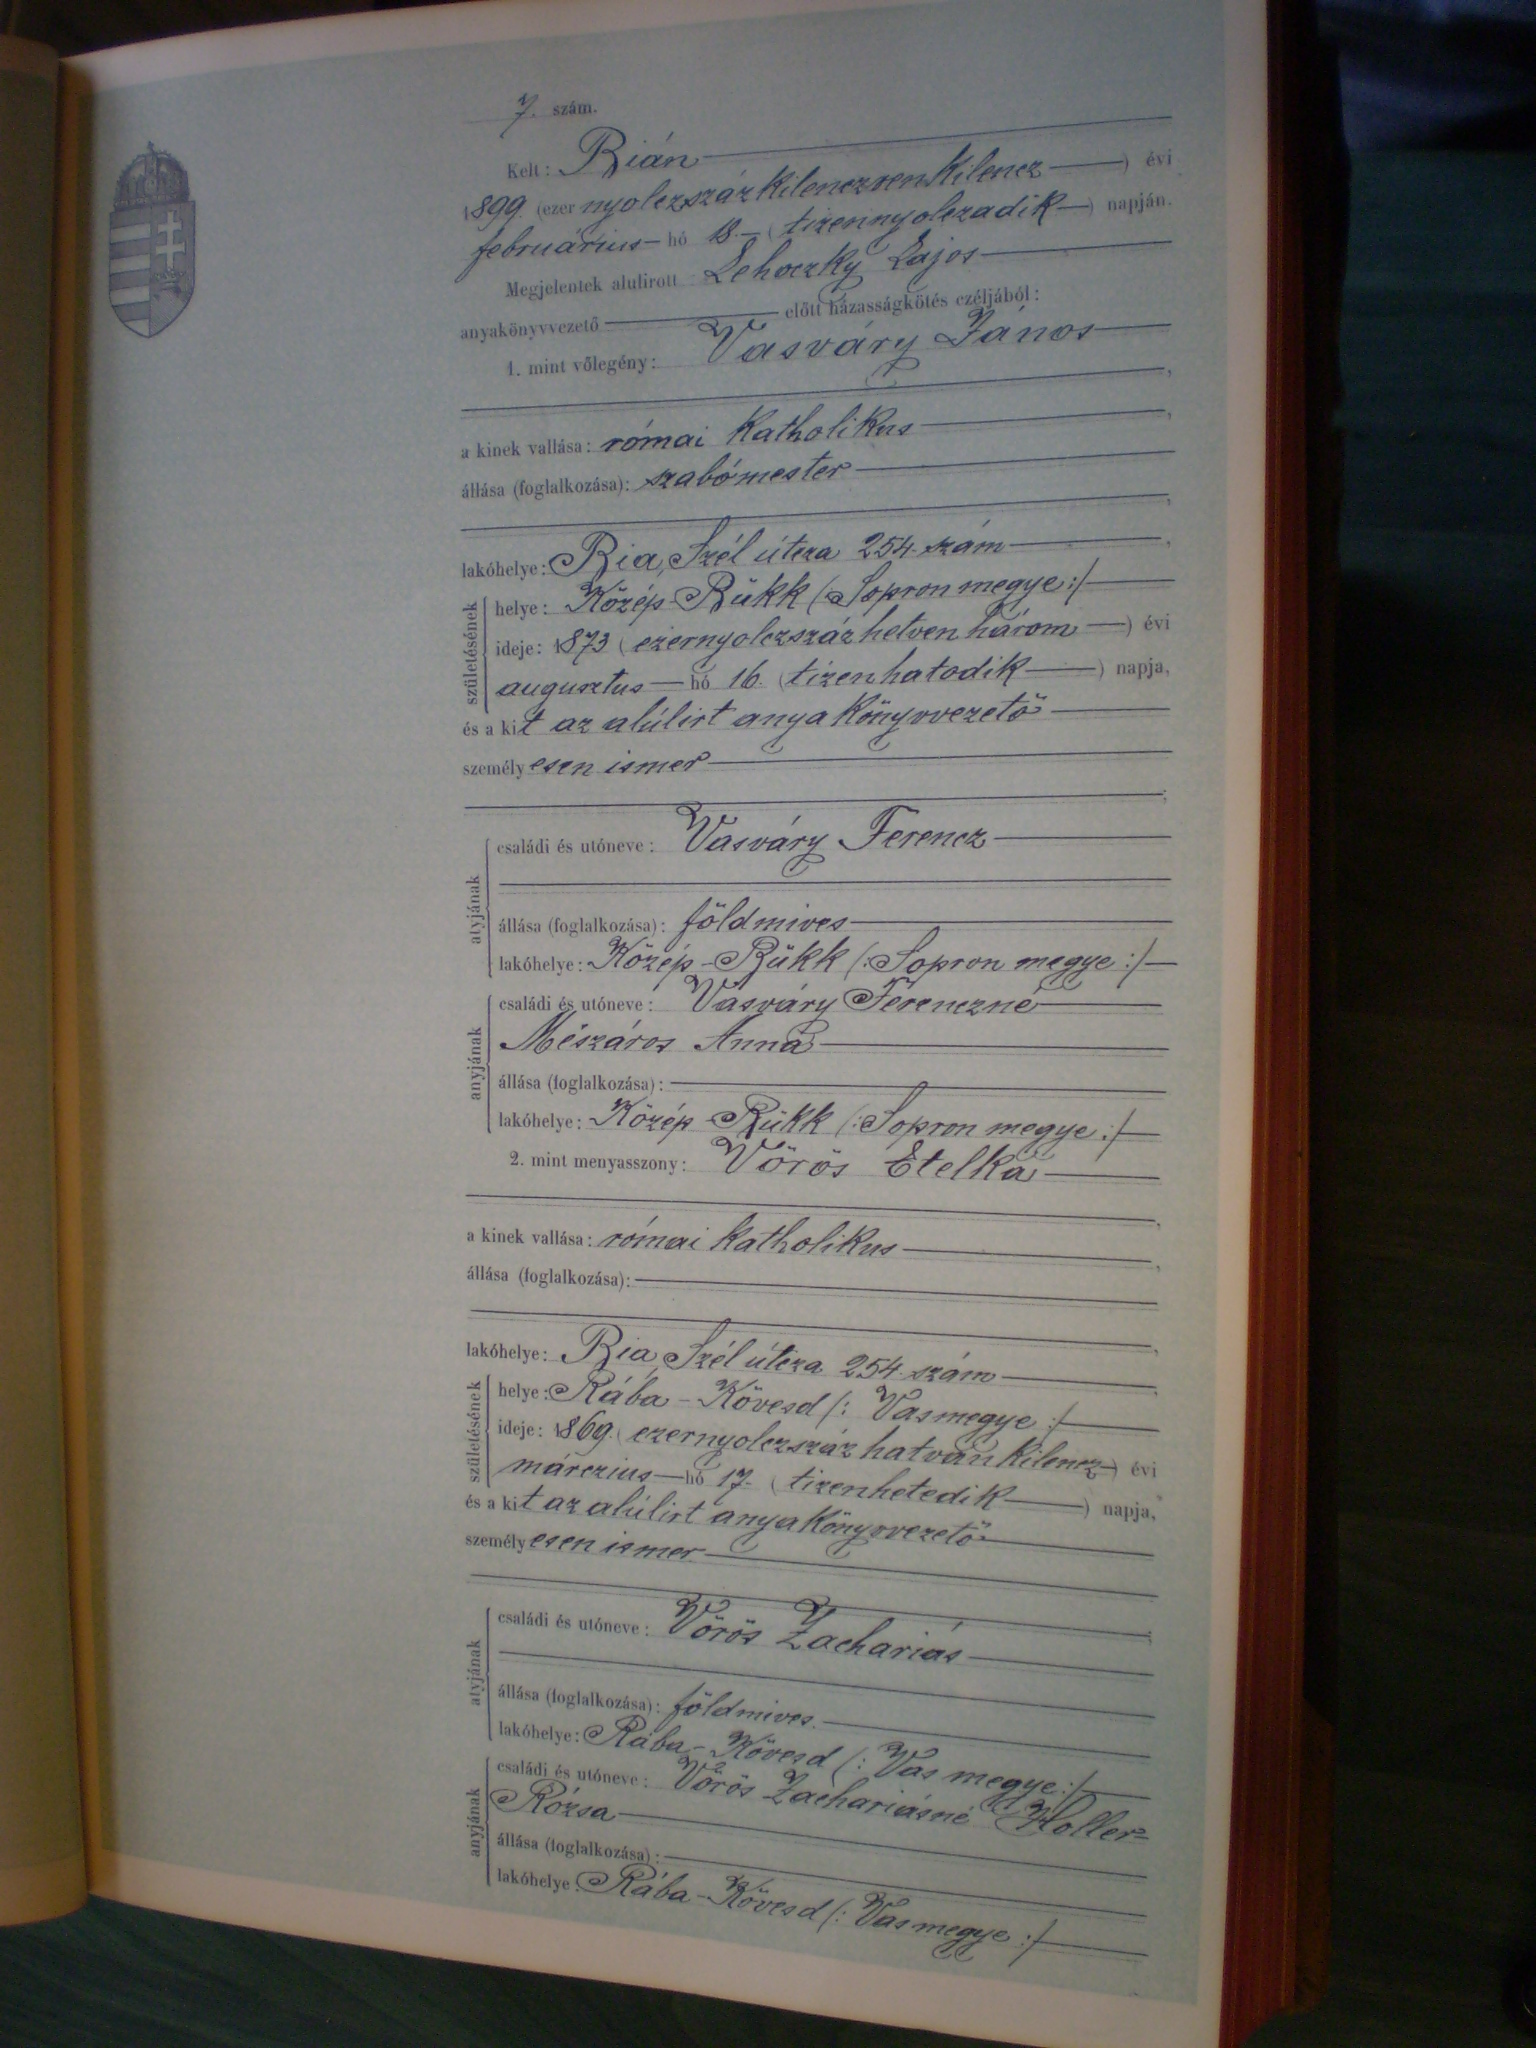 7. szám.
Kelt: Bián
1899. (ezer nyolczszáz kilenczven kilencz) évi
februárius hó 18. (tizennyolczadik) napján.
Megjelentek alulirott Lehoczky Lajos
anyakönyvvezető előtt házasságkötés czéljából:
1. mint vőlegény: Vasváry János
a kinek vallása: római katholikus
állása (foglalkozása): szabómester
lakóhelye: Bia, Szél útcza 254. szám
születésének
helye: Közép-Bükk (: Sopron megye :)
ideje: 1873 (ezernyolczszáz hetven három) évi
augusztus hó 16. (tizenhatodik) napja,
és a kit az alúlirt anyakönyvvezető
személyesen ismer
atyjának
családi és utóneve: Vasváry Ferencz
állása (foglalkozása): földmives
lakóhelye: Közép-Bükk (: Sopron megye :)
anyjának
családi és utóneve: Vasváry Ferenczné
Mészáros Anna
állása (foglalkozása):
lakóhelye: Közép-Bükk (: Sopron megye :)
2. mint menyasszony: Vörös Etelka
a kinek vallása: római katholikus
állása (foglalkozása):
lakóhelye: Bia, Szél útcza 254. szám
születésének
helye: Rába-Kövesd (: Vasmegye :)
ideje: 1869. (ezernyolczszáz hatvan kilencz) évi
márczius hó 17. (tizenhetedik) napja,
és a kit az alúlirt anyakönyvvezető
személyesen ismer
atyjának
családi és utóneve: Vörös Zachariás
állása (foglalkozása): földmives.
lakóhelye: Rába-Kövesd (: Vas megye :)
anyjának
családi és utóneve: Vörös Zachariásné Holler
Rózsa
állása (foglalkozása):
lakóhelye: Rába-Kövesd (: Vasmegye :)